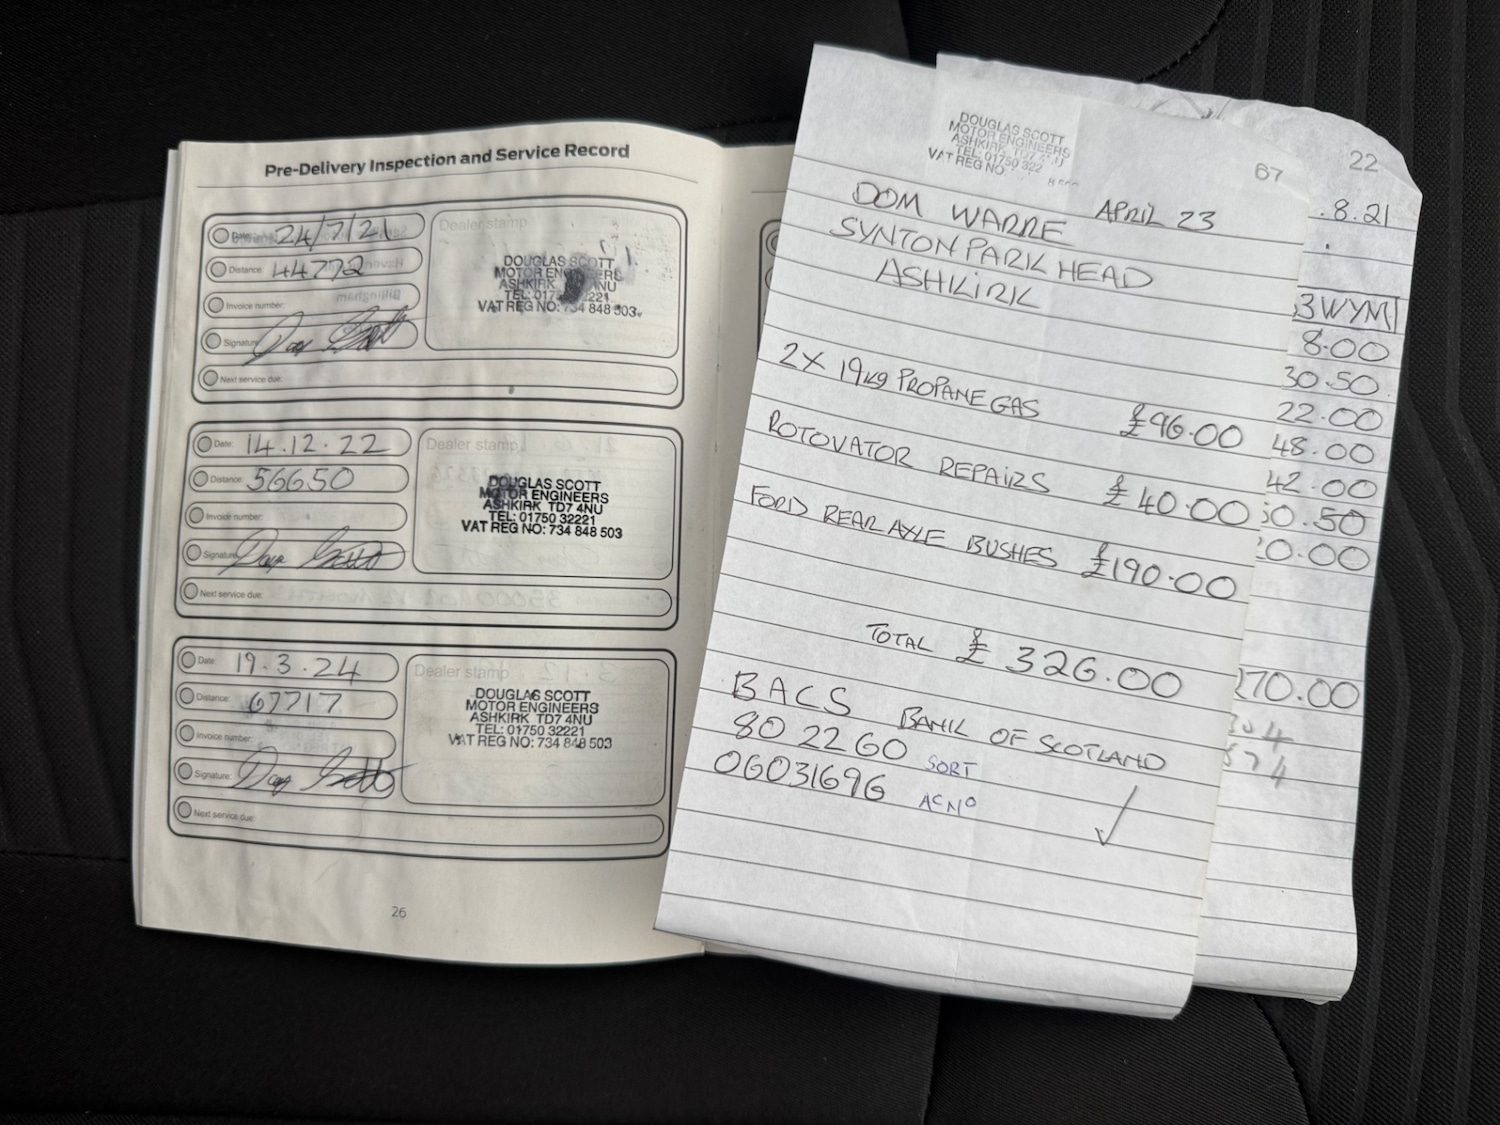 Pre-Delivery Inspection and Service Record
Date: 24/7/21
Distance: 44772
Invoice number:
Signature:
Next service due:
Dealer stamp
DOUGLAS SCOTT
MOTOR ENGINEERS
ASHKIRK NU
TEL: 017 221
VAT REG NO: 734 848 503
Date: 14.12.22
Distance: 56650
Invoice number:
Signature:
Next service due:
Dealer stamp
DOUGLAS SCOTT
MOTOR ENGINEERS
ASHKIRK TD7 4NU
TEL: 01750 32221
VAT REG NO: 734 848 503
Date: 19.3.24
Distance: 67717
Invoice number:
Signature:
Next service due:
Dealer stamp
DOUGLAS SCOTT
MOTOR ENGINEERS
ASHKIRK TD7 4NU
TEL: 01750 32221
VAT REG NO: 734 848 503
26
DOUGLAS SCOTT
MOTOR ENGINEERS
ASHKIRK
TEL: 01750 322
VAT REG NO:
67
DOM WARRE APRIL 23
SYNTON PARK HEAD
ASHKIRK
2X 19kg PROPANE GAS £96.00
ROTOVATOR REPAIRS £40.00
FORD REAR AXLE BUSHES £190.00
TOTAL £326.00
BACS BANK OF SCOTLAND
80 22 60 SORT
06031696 AC Nº
22
.8.21
3WYM
8.00
30.50
22.00
48.00
42.00
50.50
0.00
270.00